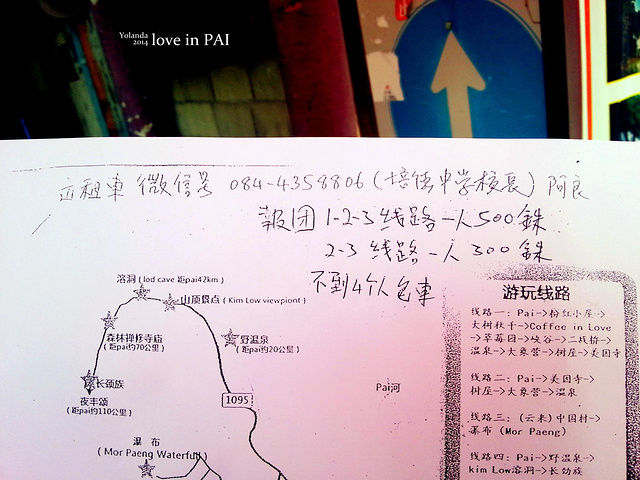 Yolanda
2014 love in PAI
租車 微信号 084-4358806 (培恆中学校長) 阿良
報团 1-2-3 线路一人500銖
2-3 线路一人300銖
不到4个人包車
溶洞 (lod cave 距pai42km)
山顶景点 (Kim Low viewpoint)
森林禅修寺庙
(距pai约70公里)
野温泉
(距pai约20公里)
长颈族
夜丰颂
(距pai约110公里)
Pai河
1095
瀑布
(Mor Paeng Waterfull)
游玩线路
线路一: Pai->粉红小屋->
大树秋千->Coffee in Love
->草莓园->峡谷->二战桥->
温泉->大象营->树屋->美国寺
线路二: Pai->美国寺->
树屋->大象营->温泉
线路三: (云来) 中国村->
瀑布 (Mor Paeng)
线路四: Pai->野温泉->
kim Low溶洞->长劲族